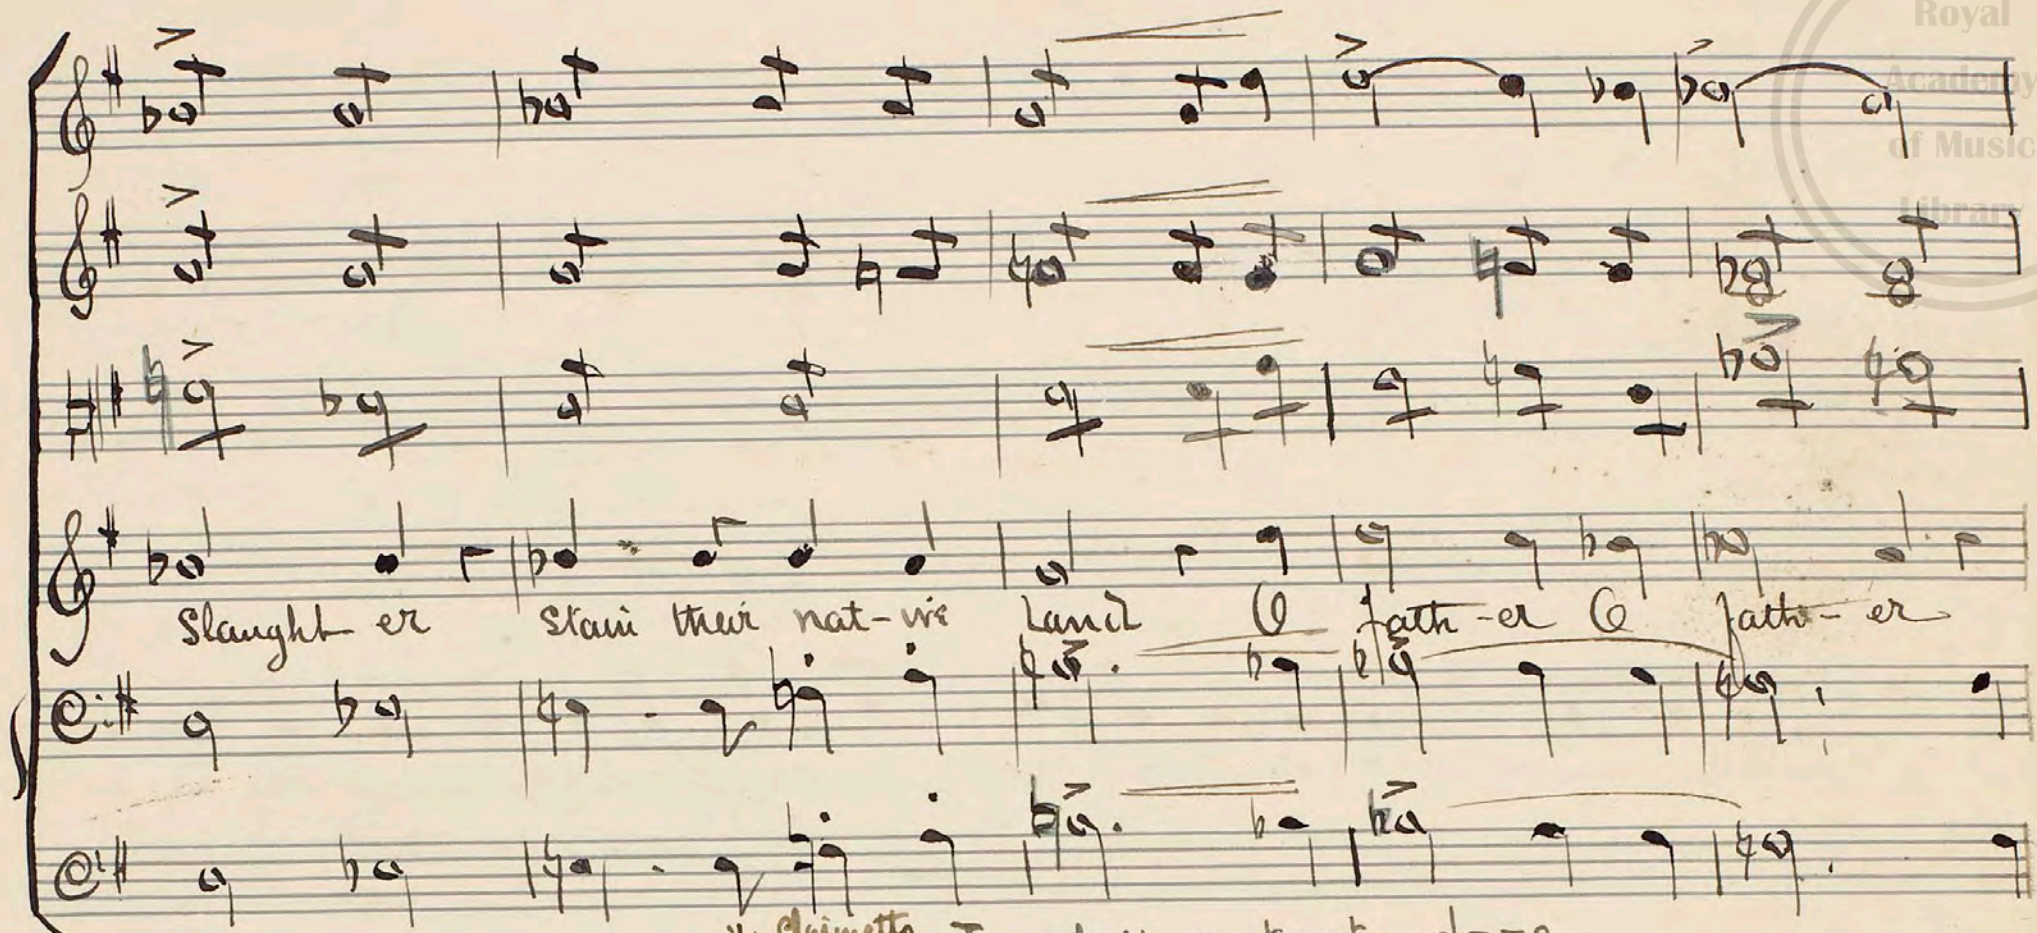 Royal
Academy
of Music
Library
Slaught-er stain their nat-ive Land O fath-er O fath-er